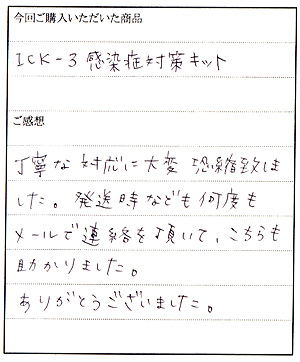 今回ご購入いただいた商品
ICK-3 感染症対策キット
ご感想
丁寧な対応に大変恐縮致しま
した。発送時なども何度も
メールで連絡を頂いて、こちらも
助かりました。
ありがとうございました。